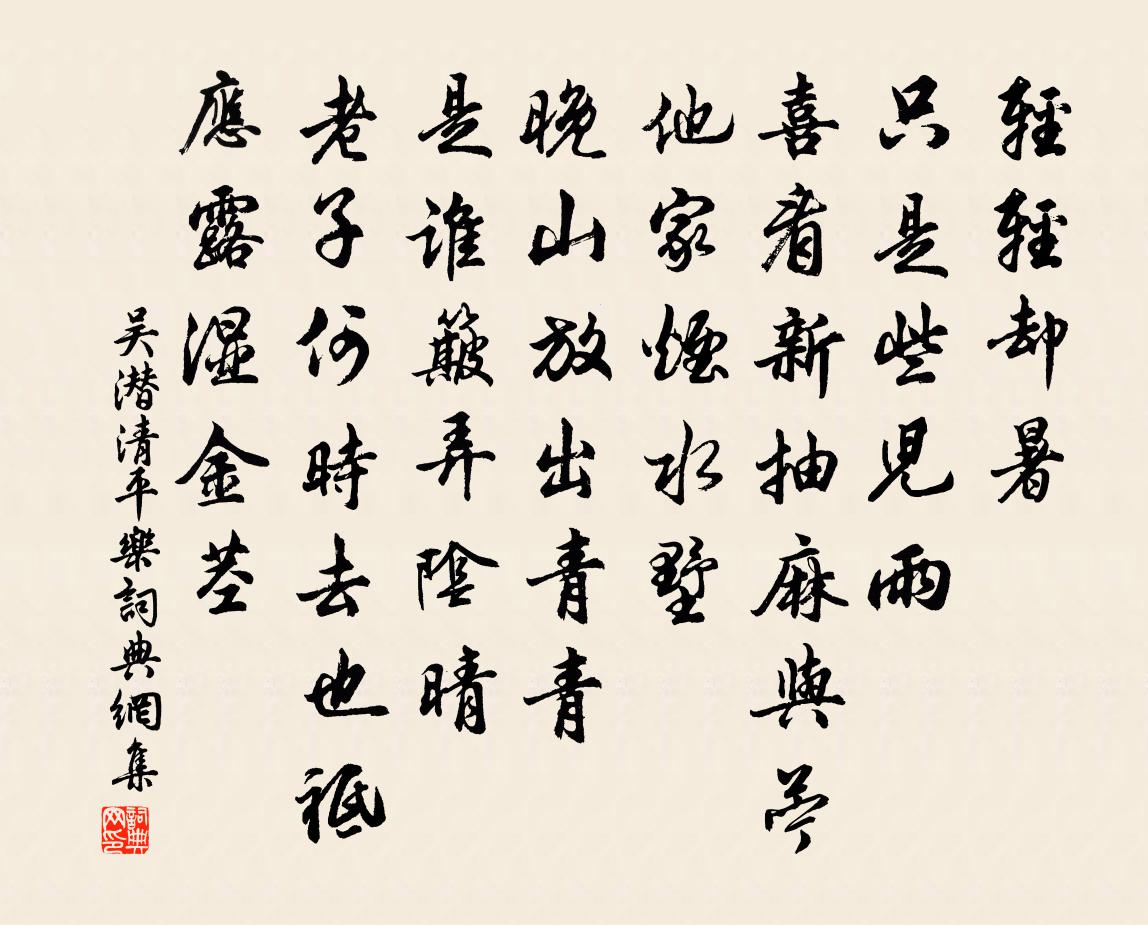 輕輕却暑
只是些兒雨
喜看新抽麻與苧
他家煙水墅
晚山放出青青
是誰簸弄陰晴
老子何時去也祗
應露濕金茎
吴潜清平樂詞典網集
詞典网印